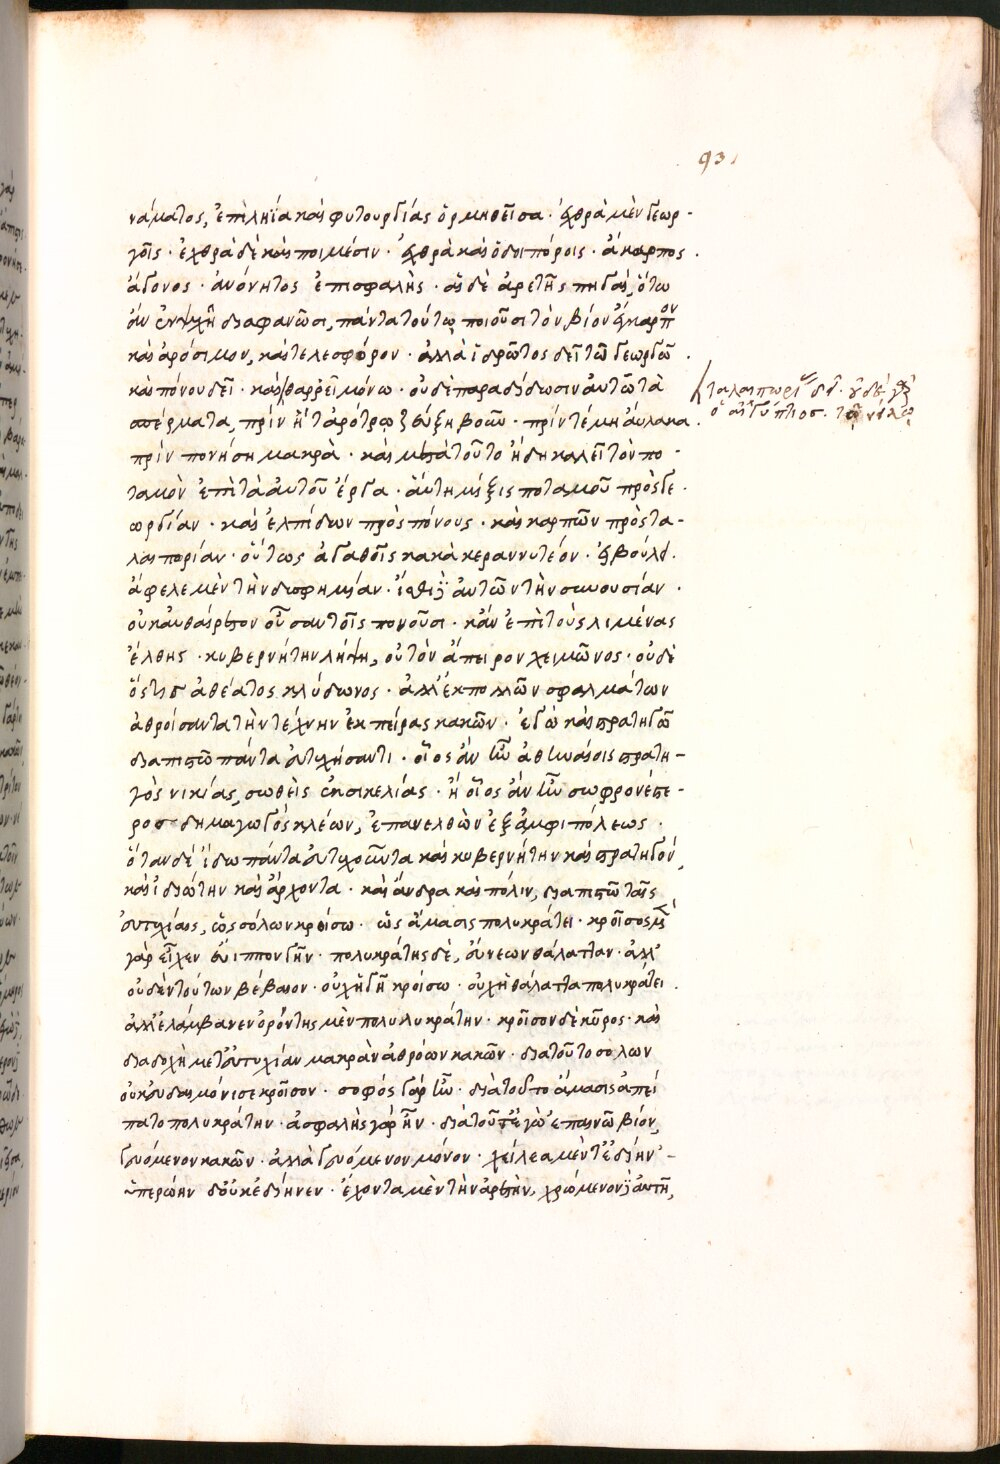 93
νάματος, ἐπὶ λήϊα καὶ φυτουργίας ὁρμηθεῖσα · ἐχθρὰ μὲν γεωρ-
γοῖς · ἐχθρὰ δὲ καὶ ποιμέσιν · ἐχθρὰ καὶ ὁδοιπόροις · ἄκαρπος ·
ἄγονος · ἀνόνητος ἐπισφαλής · αἱ δὲ ἀρετῆς πηγαὶ, ὅτω
ἂν ἐν ψυχῇ διαφανῶσι, πάντα τούτω ποιοῦσι τὸν βίον ἔγκαρπον
καὶ ἀρόσιμον, καὶ τελεσφόρον · ἀλλὰ ἱδρῶτος δεῖ τῷ γεωργῷ ·
καὶ πόνου δεῖ · καὶ θαρρεῖ μόνω · οὐδὲ παραδίδωσιν αὐτῶ τὰ
ταλαιπωρίας δεῖ · οὐδὲ γὰρ
ὁ αἰγύπτιος · τῷ νείλῳ
σπέρματα, πρὶν ἢ τἀρότρῳ ζεύξη βοῦν · πρὶν τέμη αὔλακα ·
πρὶν πονήση μακρὰ · καὶ μετὰ τοῦτο ἤδη καλεῖ τὸν πο-
ταμὸν ἐπὶ τὰ αὐτοῦ ἔργα · αὕτη μίξις ποταμοῦ πρὸς γε-
ωργίαν · καὶ ἐλπίδων πρὸς πόνους · καὶ καρπῶν πρὸς τα-
λαιπορίαν · οὕτως ἀγαθοῖς κακὰ κεραννυτέον · εἰ βούλει
ἄφελε μὲν τὴν δυσφημίαν · αὐτῶν τὴν συνουσίαν ·
οὐκ αὐθαίρετον οὖσαν τοῖς πονοῦσι · κἂν ἐπὶ τοὺς λιμένας
ἔλθης · κυβερνήτην λήψη, οὐ τὸν ἄπειρον χειμῶνος · οὐδὲ
ὅστις ἀθέατος κλύδωνος · ἀλλ' ἐκ πολλῶν σφαλμάτων
ἀθροίσαντα τὴν τέχνην ἐκ πείρας κακῶν · ἐγὼ καὶ στρατηγῶ
διαπιστῶ πάντα εὐτυχήσαντι · οἷος ἂν ἦν ἀθηναίοις στρατη-
γὸς νικίας, σωθεὶς ἐκ σικελίας · ἢ οἷος ἂν ἦν σωφρονέστε-
ρος δημαγωγὸς κλέων, ἐπανελθὼν ἐξ ἀμφιπόλεως ·
ὅταν δὲ ἴδω πάντα εὐτυχοῦντα καὶ κυβερνήτην καὶ στρατηγόν,
καὶ ἰδιώτην καὶ ἄρχοντα · καὶ ἄνδρα καὶ πόλιν, διαπιστῶ ταῖς
εὐτυχίαις, ὡς σόλων κροίσω · ὡς ἄμασις πολυκράτει · κροῖσος μὲν
γὰρ εἶχεν εὔιππον γῆν · πολυκράτης δὲ, εὔνεων θάλατταν · ἀλλ'
οὐδὲν τούτων βέβαιον · οὐχ ἡ γῆ κροίσω · οὐχ ἡ θάλαττα πολυκράτει ·
ἀλλ' ἐλάμβανεν ὀρόντης μὲν πολυκράτην · κροῖσον δὲ κῦρος · καὶ
διαδοχὴ μετ' εὐτυχίαν μακρὰν ἀθρόων κακῶν · διὰ τοῦτο σόλων
οὐκ εὐδαιμόνισε κροῖσον · σοφὸς γὰρ ἦν · διὰ τοῦτο ἄμασις ἀπεί
πατο πολυκράτην · ἀσφαλὴς γὰρ ἦν · διὰ τοῦτ' ἐγὼ ἐπαινῶ βίον,
γευόμενον κακῶν · ἀλλὰ γευόμενον μόνον · χείλεα μὲν τ' ἐδίην' -
ὑπερώην δ' οὐκ ἐδίηνεν · ἔχοντα μὲν τὴν ἀρετὴν, χρώμενον αὐτῆ,